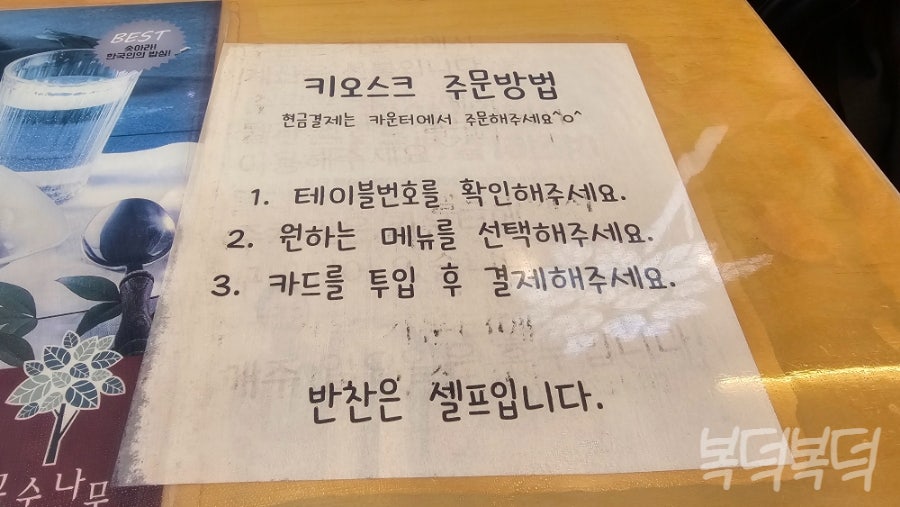 BEST
솟아라!
한국인의 밥심!
키오스크 주문방법
현금결제는 카운터에서 주문해주세요^o^
1. 테이블번호를 확인해주세요.
2. 원하는 메뉴를 선택해주세요.
3. 카드를 투입 후 결제해주세요.
반찬은 셀프입니다.
수나무
복덕복덕